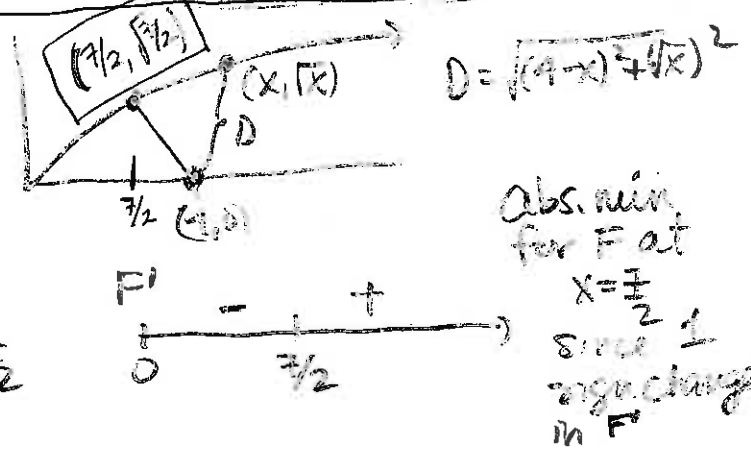 (7/2, √7/2)
(x, √x)
D = √(4-x)²+(√x)²
D
7/2
(4,0)
abs. min
for F at
x = 7/2
since 1
sign change
in F'
F'
- +
0 7/2